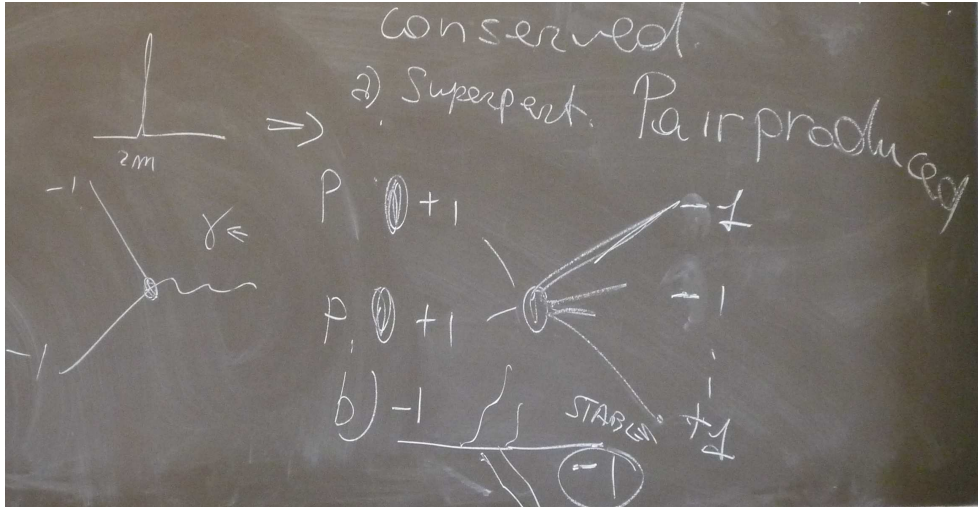 conserved.
a) Superpart. Pair produced
⇒
2m
-1
P +1
- 1
γ ⇐
P +1
- 1
-1
b) -1
STABLE
+1
-1